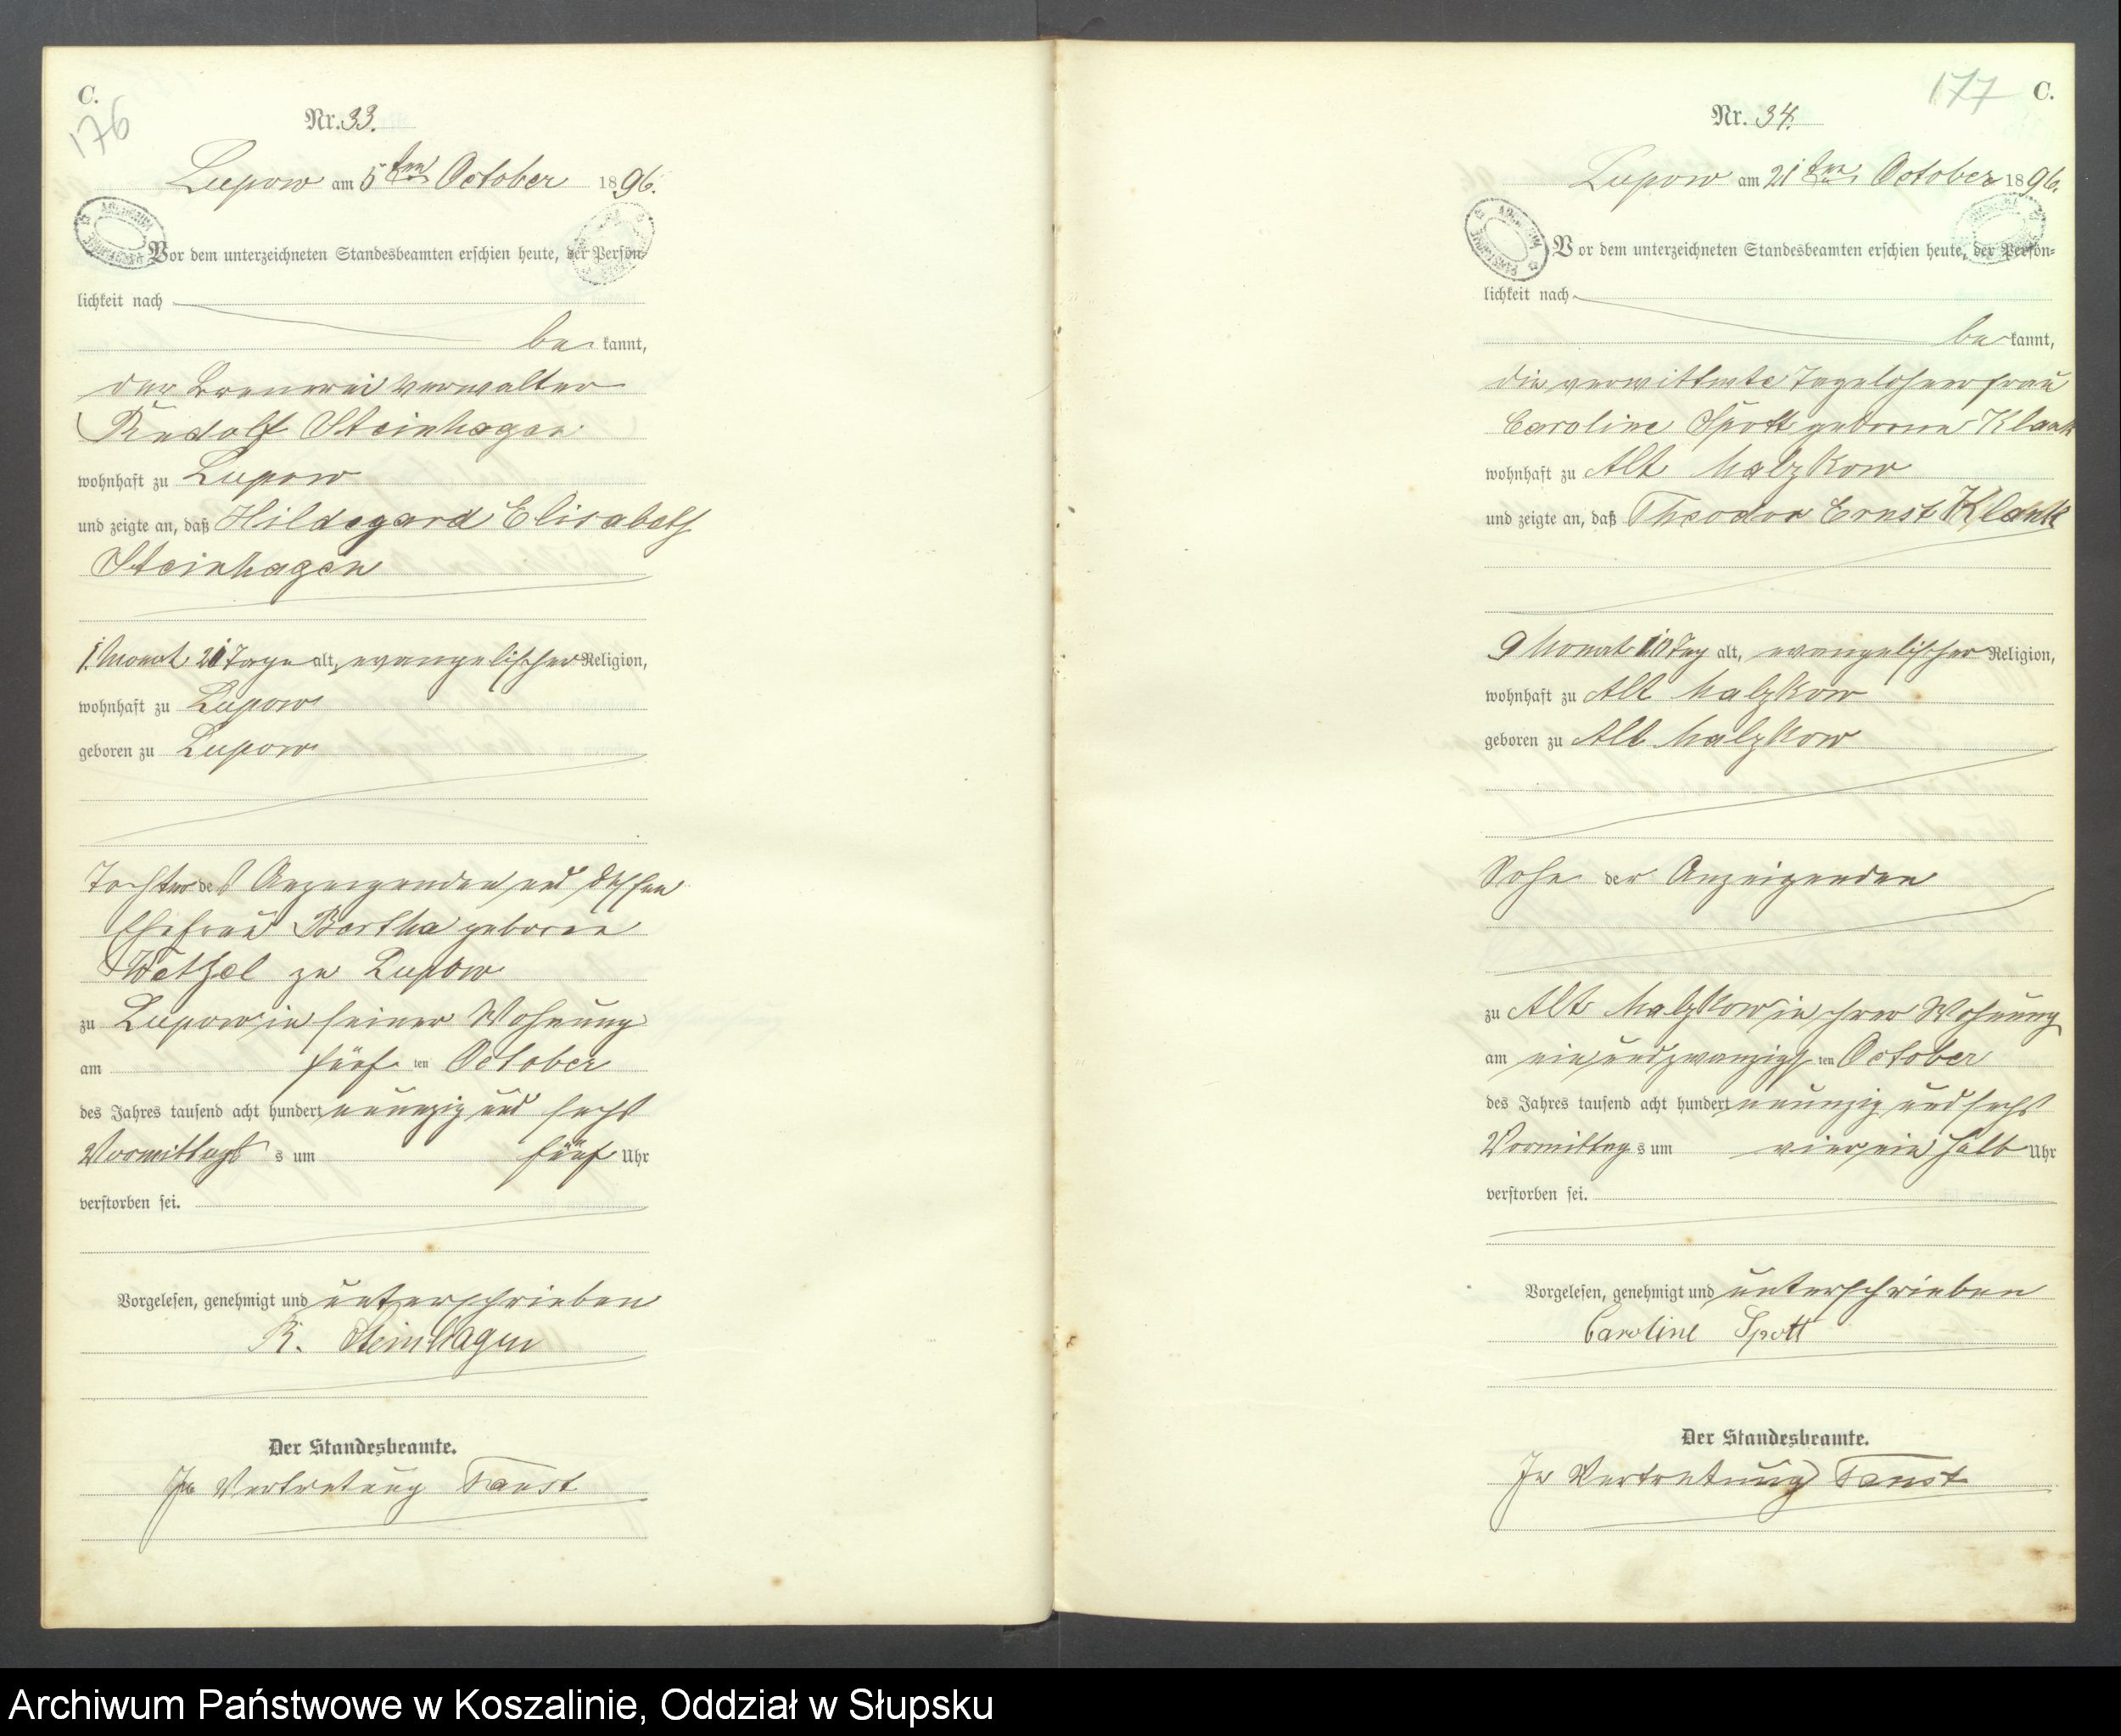 C.
176
Nr. 33.
Lupow am 5ten October 1896.
Vor dem unterzeichneten Standesbeamten erschien heute, der Persön-
lichkeit nach
be kannt,
der Brennerei verwalter
Rudolf Steinhagen
wohnhaft zu Lupow
und zeigte an, daß Hildegard Elisabeth
Steinhagen
1 Monat 21 Tage alt, evangelischer Religion,
wohnhaft zu Lupow
geboren zu Lupow
Tochter des Anzeigenden und dessen
Ehefrau Bertha geborene
zu Lupow
zu Lupow in seiner Wohnung
am fünf ten October
des Jahres tausend acht hundert neunzig und sechs
Vormittags s um fünf Uhr
verstorben sei.
Vorgelesen, genehmigt und unterschrieben
R. Steinhagen
Der Standesbeamte.
In Vertretung Faust
177
C.
Nr. 34.
Lupow am 21ten October 1896.
Vor dem unterzeichneten Standesbeamten erschien heute, der Persön-
lichkeit nach
be kannt,
die verwittwete Tagelöhnerfrau
Caroline Spott geborene Klank
wohnhaft zu Alt Malzkow
und zeigte an, daß Theodor Ernst Klank
9 Monat 10 Tag alt, evangelischer Religion,
wohnhaft zu Alt Malzkow
geboren zu Alt Malzkow
Sohn der Anzeigenden
zu Alt Malzkow in ihrer Wohnung
am ein und zwanzigs ten October
des Jahres tausend acht hundert neunzig und sechs
Vormittag s um vier ein halb Uhr
verstorben sei.
Vorgelesen, genehmigt und unterschrieben
Caroline Spott
Der Standesbeamte.
In Vertretung Faust
Archiwum Państwowe w Koszalinie, Oddział w Słupsku